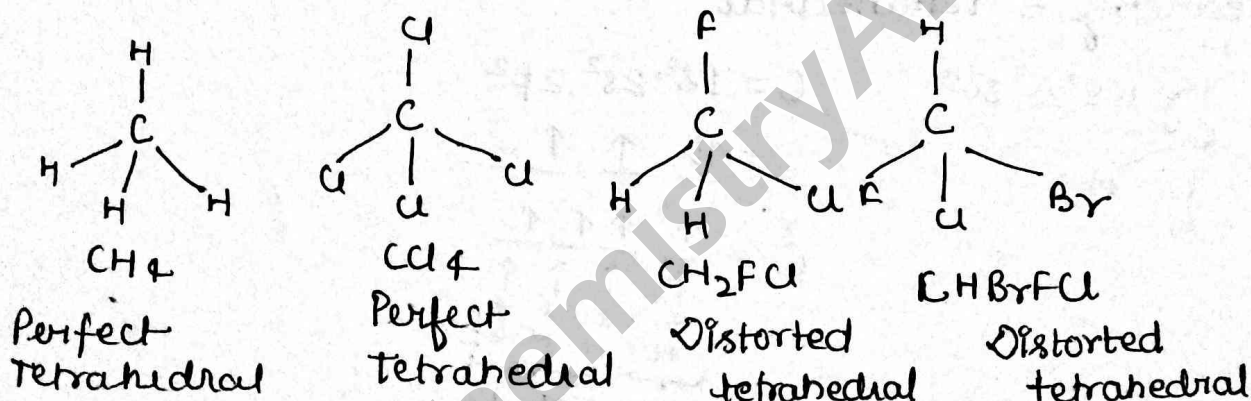 H
C
H H H
CH4
Perfect
Tetrahedral
Cl
C
Cl Cl Cl
CCl4
Perfect
tetrahedral
F
C
H H Cl
CH2FCl
Distorted
tetrahedral
H
C
F Cl Br
CHBrFCl
Distorted
tetrahedral
emistryA